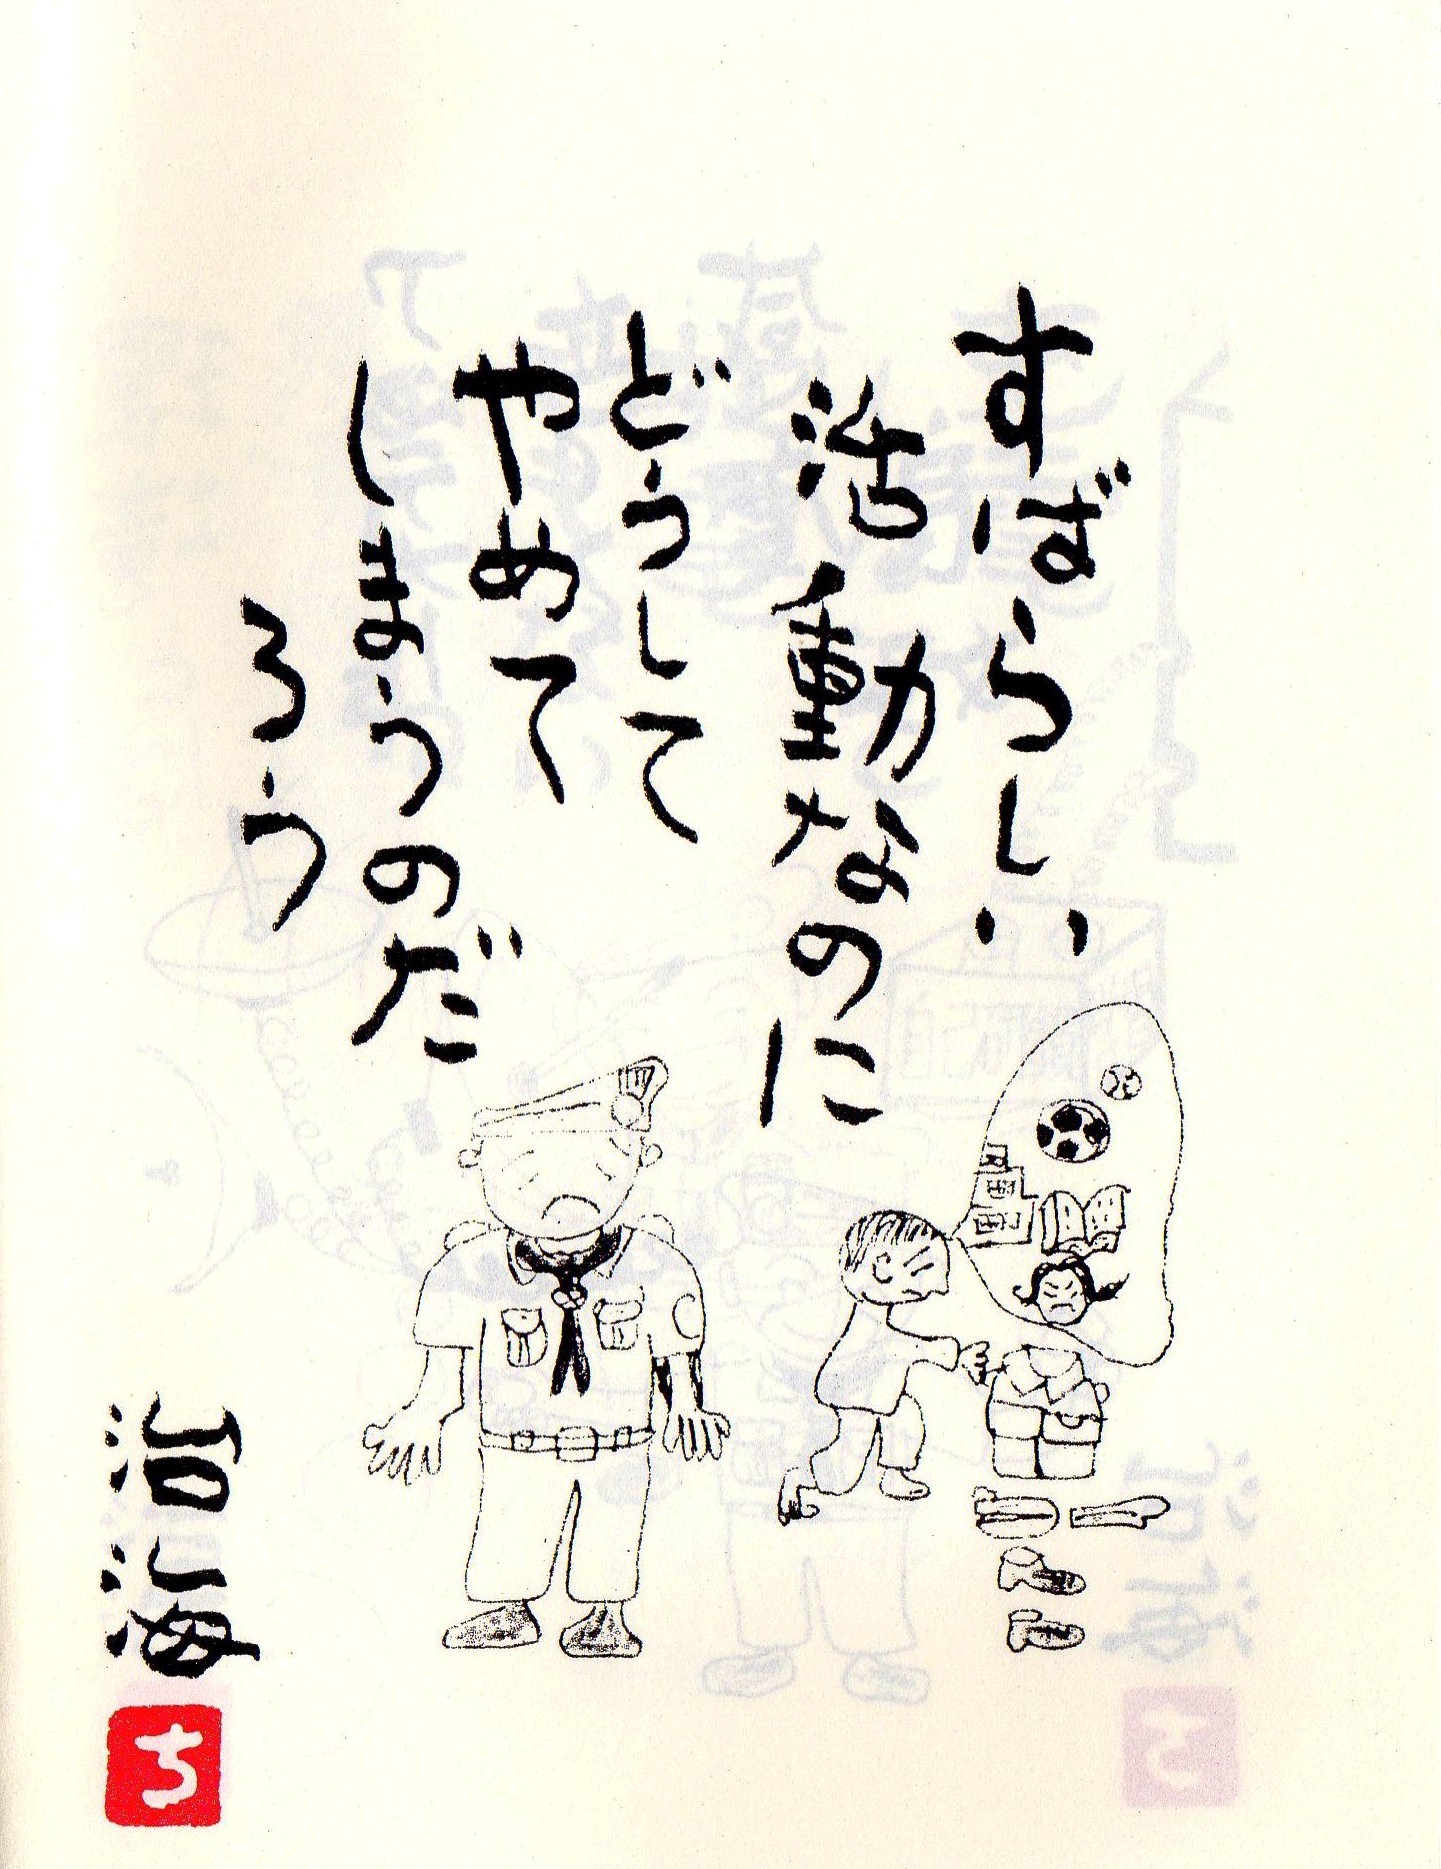 すばらしい
活動なのに
どうして
やめて
しまうのだ
ろう
治海
ち